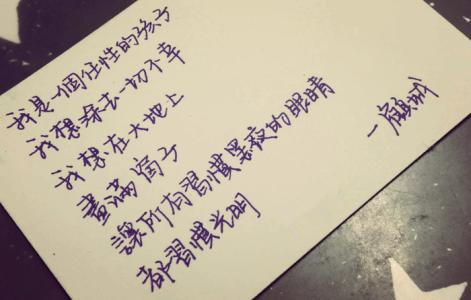 我是一個任性的孩子
我想涂去一切不幸
我想在大地上
畫滿窗子
讓所有習慣黑夜的眼睛
都習慣光明
一顧城